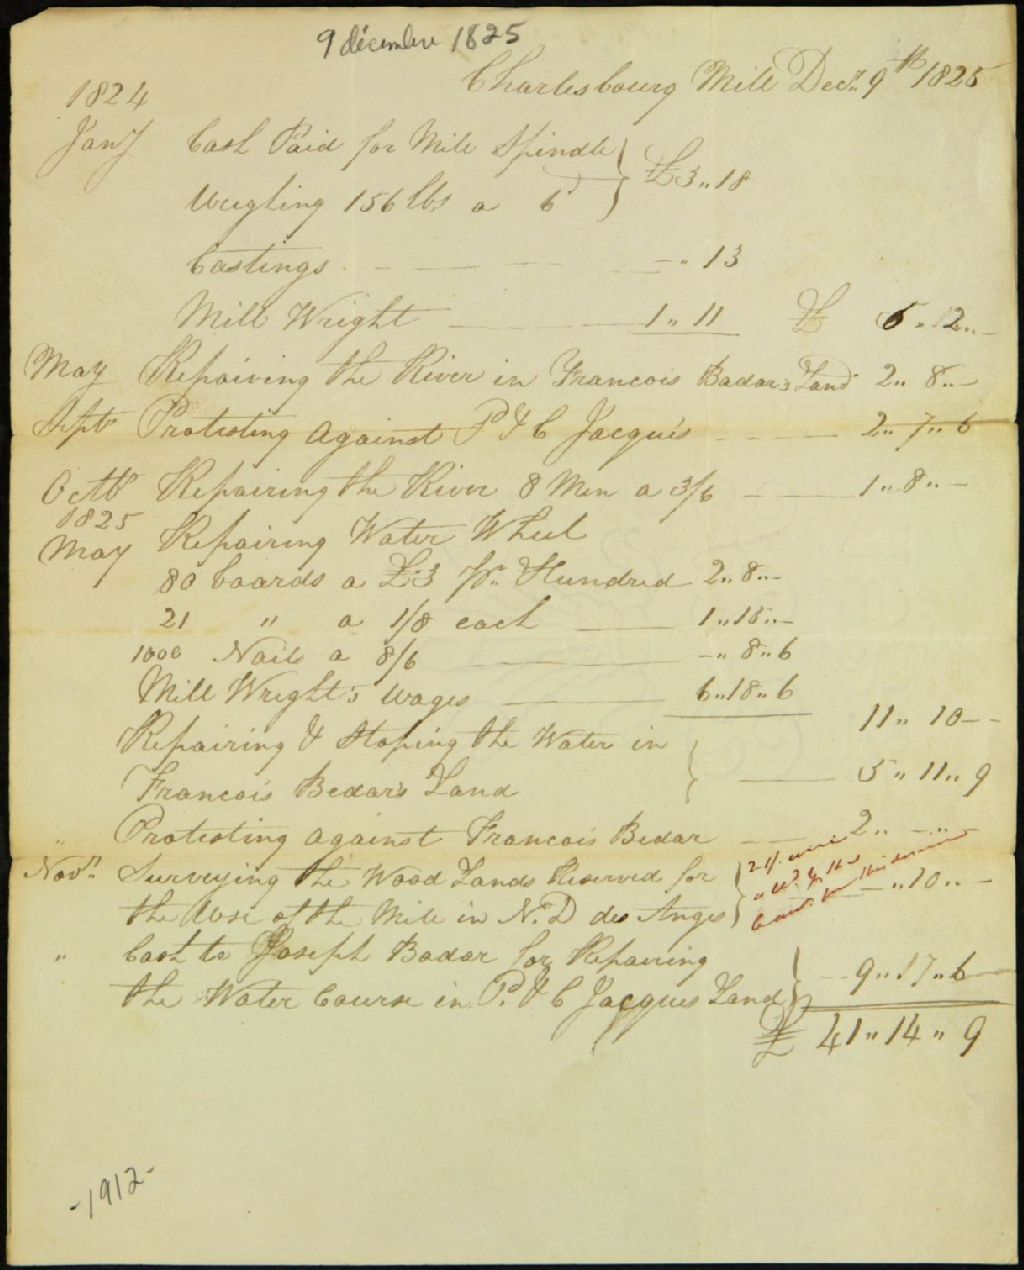 9 décembre 1825
Charlesbourg Mill Decr. 9th 1825
1824
Jany Cash Paid for Mill Spindle
Weighing 156 lbs a 6d } £3„18
Castings — — — — „ 13
Mill Wright — — — 1„ 11 £ 6„12„–
May Repairing the River in Francois Badar's Land 2„ 8„–
Sept Protesting against P & C Jacques — — — 2„ 7„ 6
Octbr Repairing the River 8 Men a 3/6 — — 1„ 8„ –
1825
May Repairing Water Wheel
80 boards a £3 pr. Hundred 2„ 8„–
21 „ a 1/8 each — 1„15„–
1000 Nails a 8/6 — –„ 8„6
Mill Wright's Wages — 6„18„6
11„ 10 – –
Repairing & Stoping the Water in
Francois Bedar's Land } — 5„ 11„ 9
„ Protesting against Francois Bedar — — 2„ –„–
Novr. Surveying the Wood Lands Reserved for
the Use of the Mill in N. D des Anges } –„10„ –
„ Cash to Joseph Badar for Repairing
the Water Course in P. & C Jacques Land } – 9„17„6
£ 41„14„ 9
-1912-